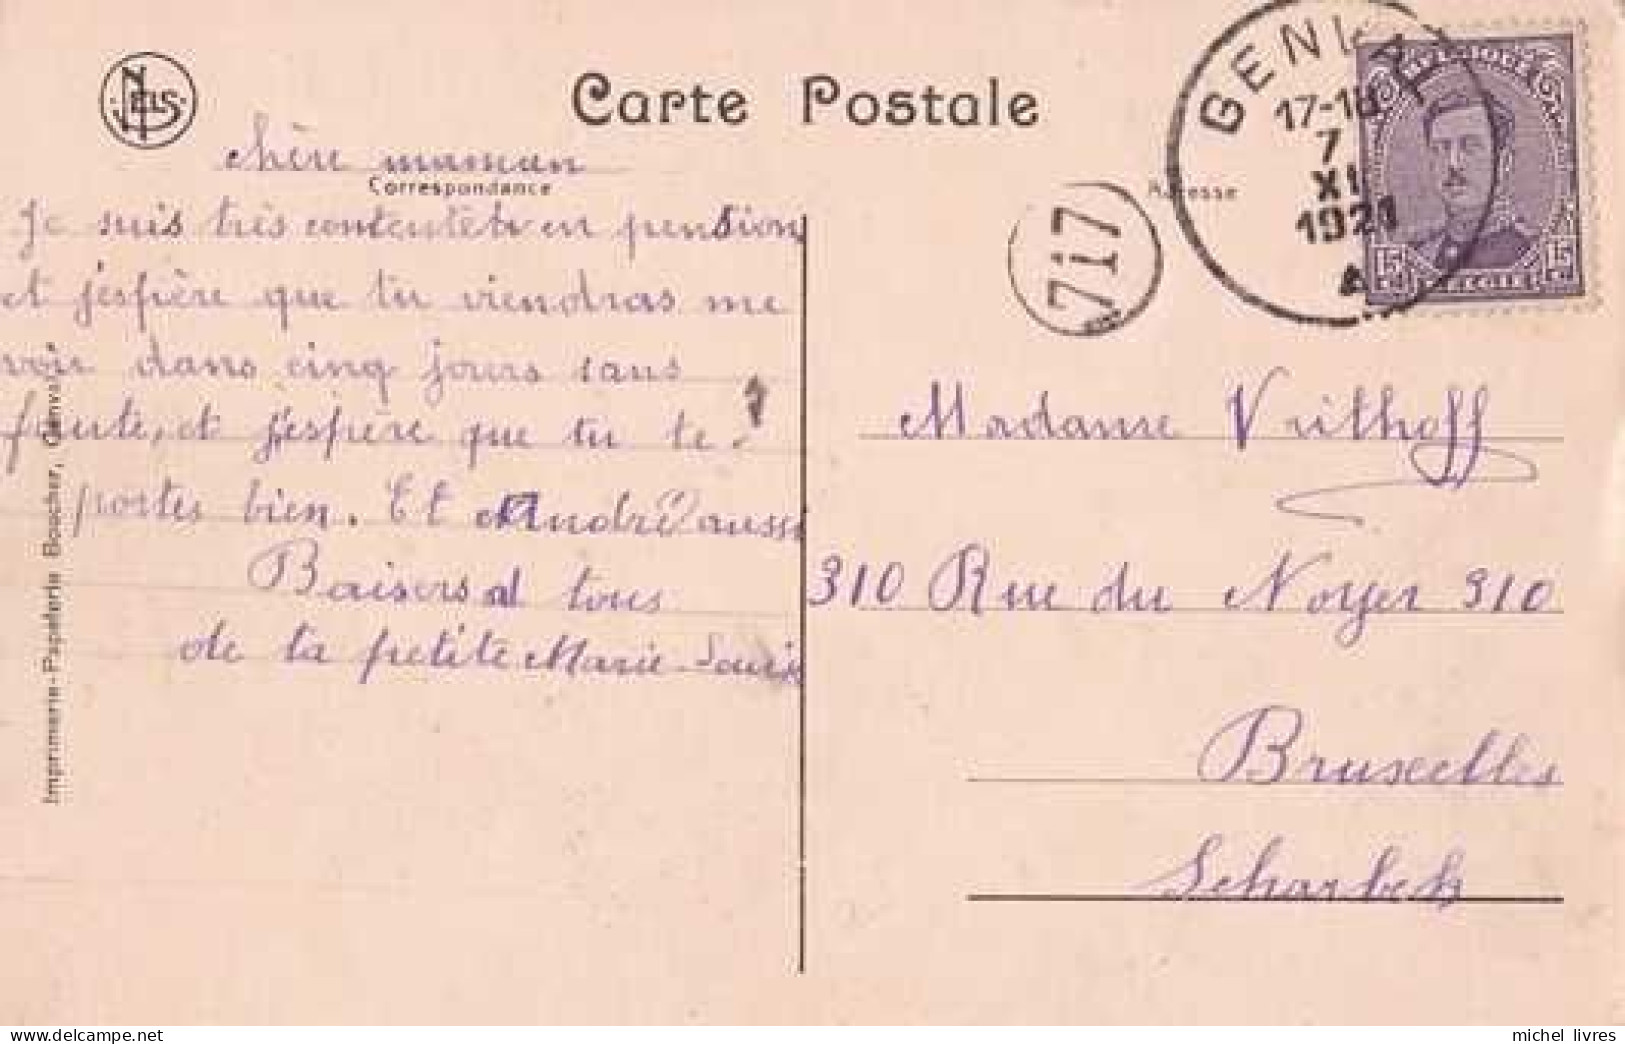 NELS
Carte Postale
chère maman
Correspondance
Je suis très contente en pension
et j'espère que tu viendras me
voir dans cinq jours sans
faute, et j'espère que tu te
portes bien. Et André aussi
Baisers à tous
de ta petite Marie-Louise
Imprimerie-Papeterie Boscher, Genval
17-18
7
XI
1921
A
15
15
717
Adresse
Madame
310 Rue du Noyer 310
Bruxelles
Scharbeek
michel_livres